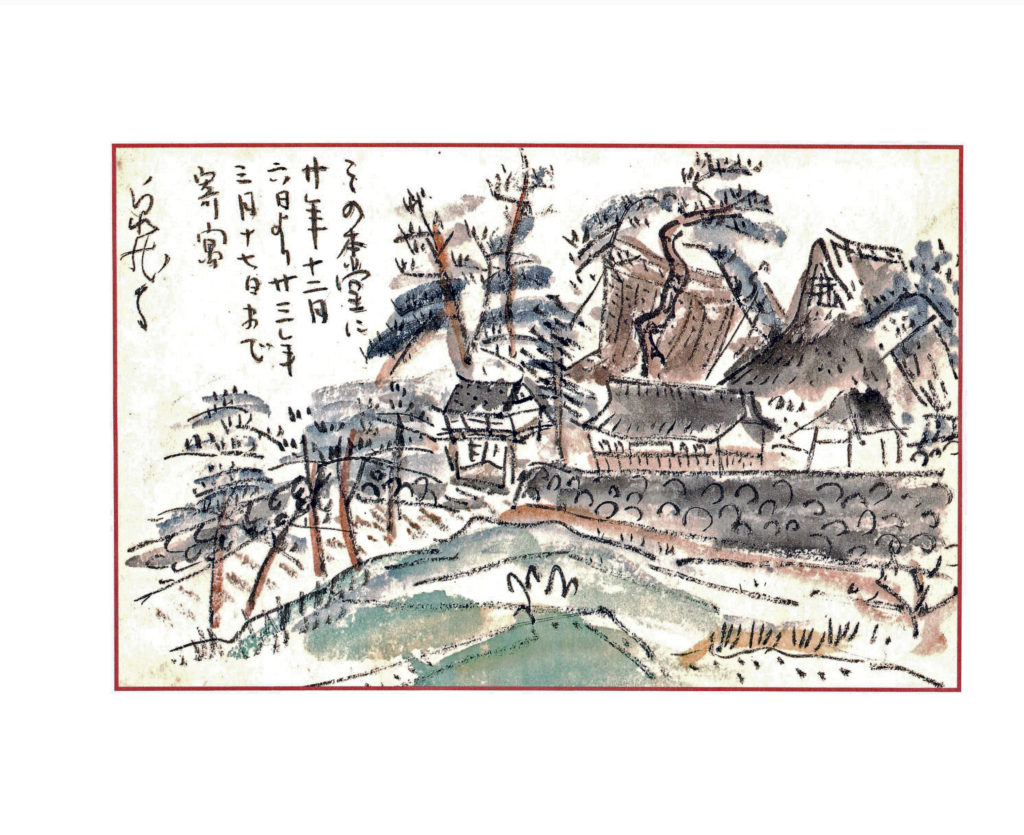 その本堂に
廿年十二月
六日より廿三年
三月十七日まで
寄寓